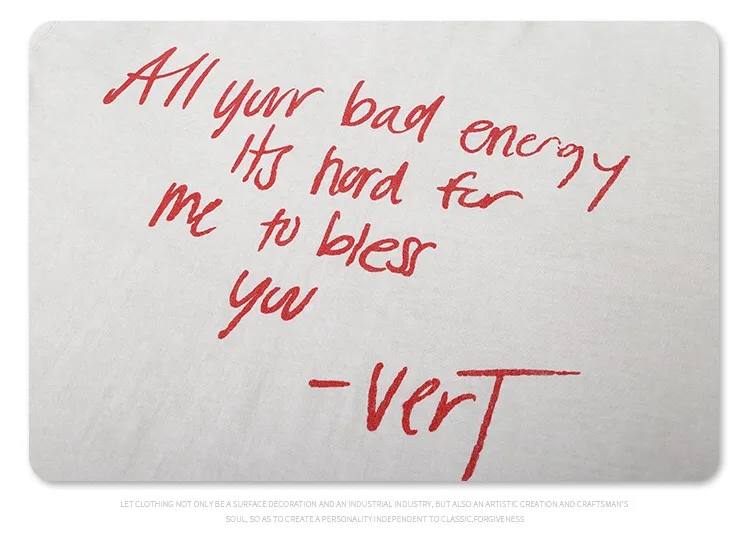 All your bad energy
It's hard for
me to bless
you
-VerT
LET CLOTHING NOT ONLY BE A SURFACE DECORATION AND AN INDUSTRIAL INDUSTRY, BUT ALSO AN ARTISTIC CREATION AND CRAFTSMAN'S
SOUL, SO AS TO CREATE A PERSONALITY INDEPENDENT TO CLASSIC.FORGIVENESS